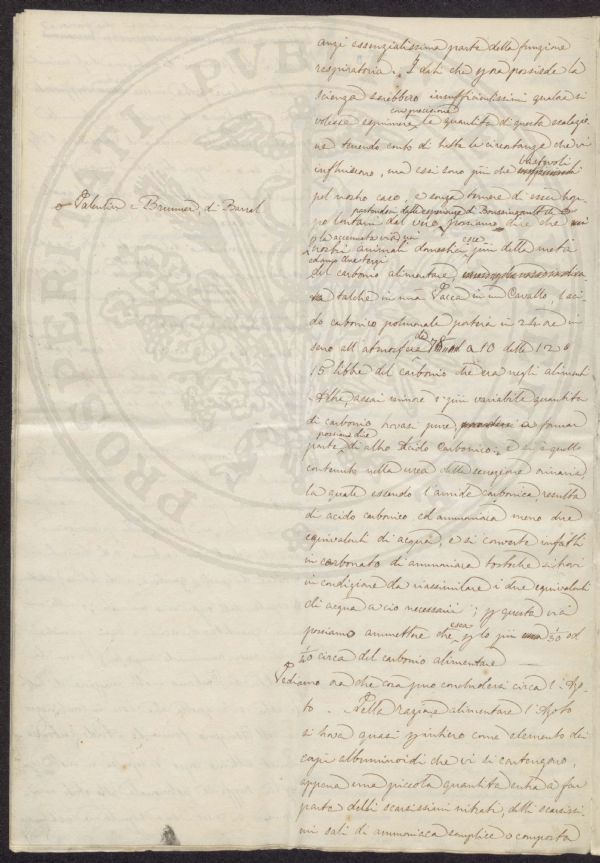 anzi essenzialissima parte della funzione
respiratoria. I dati che ora possiede la
scienza sarebbero insufficientissimi qualora si
con precisione
volesse esprimere le quantità di questa
ne tenendo conto di tutte le circostanze che vi
influiscono, ma essi sono più che
pel nostro caso, e senza temere di esser trop
Valentin e Brunner, di Barral
partendoci dalle esperienze di Boussingault
po lontani dal vero possiamo dire che
per la accennata via
esce
nostri animali domestici più della metà
ed anco due terzi
del carbonio alimentare,
talche in una Vacca in un Cavallo, l'aci
do carbonico polmonale porterà in 24 ore in
seno all'atmosfera a 10 delle 12 o
15 libbre del carbonio che era negli alimenti
Altra, assai minore e più variabile quantità
di carbonio trovasi pure, a formar
possiamo dire
parte di altro Acido Carbonico; e si è quello
contenuto nella urea della secrezione orinaria,
la quale essendo l'amide carbonica, resulta
di acido carbonico, ed ammoniaca meno due
equivalenti di acqua, e si converte infatti
in carbonato di ammoniaca tostoche si trovi
in condizione da riassimilare i due equivalenti
di acqua a ciò necessarii; per questa via
esca
possiamo ammettere che per lo più 1/30 od
1/40 circa del carbonio alimentare
Vediamo ora che cosa può concludersi circa l'Azo
to. Nella razione alimentare l'Azoto
si trova quasi per intiero come elemento dei
corpi albuminoidi che vi si contengono,
appena una piccola quantità entra a far
parte delli scarsissimi nitrati, delli scarsissi
mi sali di ammoniaca semplice o composta